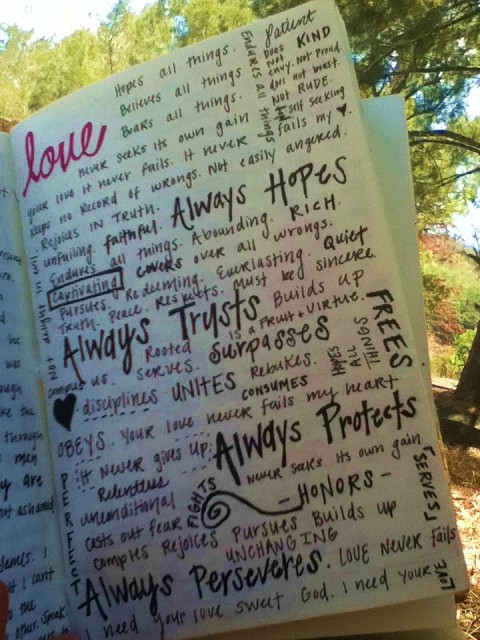 Hopes all things.
Believes all things
Bears all things.
love
never seeks its own gain
your love it never fails. It never fails my ♥.
keeps no record of wrongs. Not easily angered.
Rejoices in Truth.
Always Hopes
unfailing. faithful.
Endures all things. Abounding. RICH.
captivating covers over all wrongs.
Pursues. Redeeming. Everlasting. Quiet
Truth. Peace. Respects. Must be sincere.
Always Trusts Builds up
is a FRUIT + VIRTUE.
Rooted
us. serves. Surpasses
disciplines UNITES Rebukes.
CONSUMES
OBEYS. Your love never fails my heart
It Never gives up.
Always Protects
Relentless
never seeks its own gain
unconditional
FIGHTS
- HONORS -
casts out fear
Rejoices Pursues Builds up
UNCHANGING
Always Perseveres. LOVE Never fails
I need your love sweet God. I need your LOVE
patient
KIND
Does not
envy. Not Proud.
does not boast.
Not RUDE.
self seeking
Endures all things
FREES
ALL THINGS
SERVES
PURE